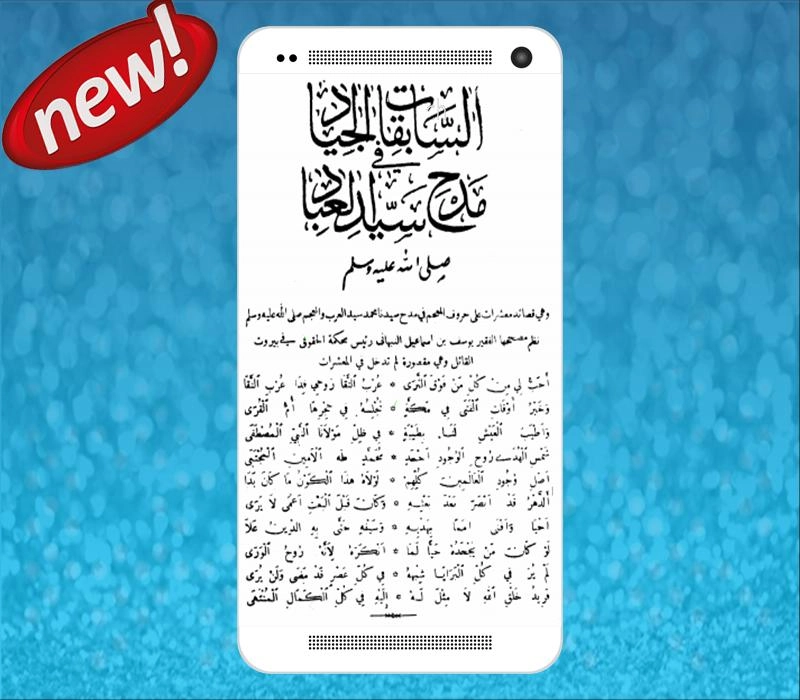 new!
السَّابقات الجياد
في
مَدح سيّد العباد
صلى الله عليه وسلم
وهي قصائد معشرات على حروف المعجم في مدح سيدنا محمد سيد العرب والعجم صلى الله عليه وسلم
نظم مصححها الفقير يوسف بن اسماعيل النبهاني رئيس محكمة الحقوق في بيروت
القائل وهي مقصورة لم تدخل في المعشرات
أَحَبُّ لي من كُلِّ مَنْ فَوْقَ الثَّرَى * عُرْبُ النَّقَا رُوحي فِدَا عُرْبِ النَّقَا
وَخَيْرُ أَوْقَاتِ الْفَتَى فِي مَكَّةٍ * جُلُوسُهُ فِي حِجْرِهَا أُمِّ الْقُرَى
وَأَطْيَبُ الْعَيْشِ لَنَا بِطَيْبَةٍ * فِي ظِلِّ مَوْلَانَا النَّبِيِّ الْمُصْطَفَى
شَمْسِ الْهُدَى رُوحِ الْوُجُودِ أَحْمَدٍ * مُحَمَّدٍ طه الْأَمِينِ الْمُجْتَبَى
أَصْلِ وُجُودِ الْعَالَمِينَ كُلِّهِمْ * لَوْلَاهُ هذَا الْكَوْنُ مَا كَانَ بَدَا
أَلدَّهْرُ قَدْ أَبْصَرَ بَعْدَ * وَكَانَ قَبْلَ الْبَعْثِ أَعْمَى لَا يَرَى
أَحْيَا وَأَفْنَى أُمَمًا بِهَدْيِهِ * وَسَيْفِهِ حَتَّى بِهِ الدِّينُ عَلَا
لَوْ كَانَ مَنْ يَجْحَدُهُ حَيًّا لَمَا * أَنْكَرَهُ لِأَنَّهُ رُوحُ الْوَرَى
لَمْ يُرَ فِي كُلِّ الْبَرَايَا شِبْهُهُ * فِي كُلِّ عَصْرٍ قَدْ مَضَى وَلَنْ يُرَى
فَرِيدُ خَلْقِ اللهِ لَا مِثْلَ لَهُ * إِلَيْهِ فِي كُلِّ الْكَمَالِ الْمُنْتَهَى